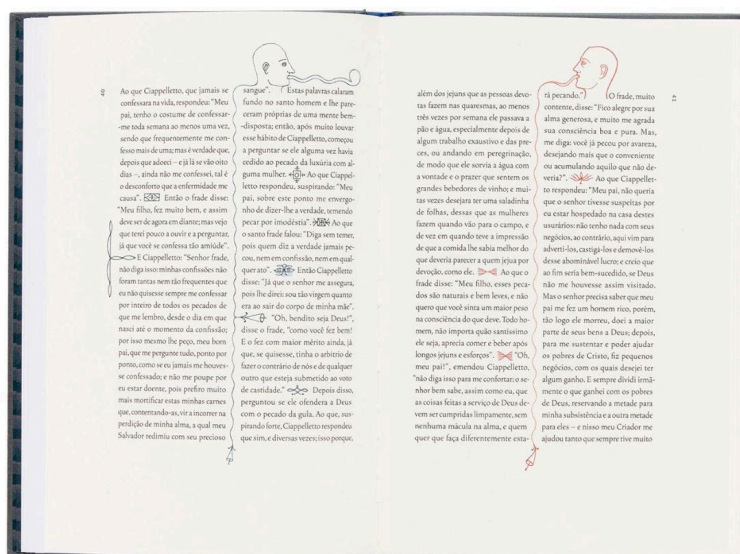 40
Ao que Ciappelletto, que jamais se
confessara na vida, respondeu: “Meu
pai, tenho o costume de confessar-
-me toda semana ao menos uma vez,
sendo que frequentemente me con-
fesso mais de uma; mas é verdade que,
depois que adoeci – e já lá se vão oito
dias –, ainda não me confessei, tal é
o desconforto que a enfermidade me
causa”. Então o frade disse:
“Meu filho, fez muito bem, e assim
deve ser de agora em diante; mas vejo
que terei pouco a ouvir e a perguntar,
já que você se confessa tão amiúde”.
E Ciappelletto: “Senhor frade,
não diga isso: minhas confissões não
foram tantas nem tão frequentes que
eu não quisesse sempre me confessar
por inteiro de todos os pecados de
que me lembro, desde o dia em que
nasci até o momento da confissão;
por isso mesmo lhe peço, meu bom
pai, que me pergunte tudo, ponto por
ponto, como se eu jamais me houves-
se confessado; e não me poupe por
eu estar doente, pois prefiro muito
mais mortificar estas minhas carnes
que, contentando-as, vir a incorrer na
perdição de minha alma, a qual meu
Salvador redimiu com seu precioso
sangue”. Estas palavras calaram
fundo no santo homem e lhe pare-
ceram próprias de uma mente bem-
-disposta; então, após muito louvar
esse hábito de Ciappelletto, começou
a perguntar se ele alguma vez havia
cedido ao pecado da luxúria com al-
guma mulher. Ao que Ciappel-
letto respondeu, suspirando: “Meu
pai, sobre este ponto me envergo-
nho de dizer-lhe a verdade, temendo
pecar por imodéstia”. Ao que
o santo frade falou: “Diga sem temer,
pois quem diz a verdade jamais pe-
cou, nem em confissão, nem em qual-
quer ato”. Então Ciappelletto
disse: “Já que o senhor me assegura,
pois lhe direi: sou tão virgem quanto
era ao sair do corpo de minha mãe”.
“Oh, bendito seja Deus!”,
disse o frade, “como você fez bem!
E o fez com maior mérito ainda, já
que, se quisesse, tinha o arbítrio de
fazer o contrário de nós e de qualquer
outro que esteja submetido ao voto
de castidade.” Depois disso,
perguntou se ele ofendera a Deus
com o pecado da gula. Ao que, sus-
pirando forte, Ciappelletto respondeu
que sim, e diversas vezes; isso porque,
além dos jejuns que as pessoas devo-
tas fazem nas quaresmas, ao menos
três vezes por semana ele passava a
pão e água, especialmente depois de
algum trabalho exaustivo e das pre-
ces, ou andando em peregrinação,
de modo que ele sorvia a água com
a vontade e o prazer que sentem os
grandes bebedores de vinho; e mui-
tas vezes desejara ter uma saladinha
de folhas, dessas que as mulheres
fazem quando vão para o campo, e
de vez em quando teve a impressão
de que a comida lhe sabia melhor do
que deveria parecer a quem jejua por
devoção, como ele. Ao que o
frade disse: “Meu filho, esses peca-
dos são naturais e bem leves, e não
quero que você sinta um maior peso
na consciência do que deve. Todo ho-
mem, não importa quão santíssimo
ele seja, aprecia comer e beber após
longos jejuns e esforços”. “Oh,
meu pai!”, emendou Ciappelletto,
“não diga isso para me confortar: o se-
nhor bem sabe, assim como eu, que
as coisas feitas a serviço de Deus de-
vem ser cumpridas limpamente, sem
nenhuma mácula na alma, e quem
quer que faça diferentemente esta-
rá pecando.” O frade, muito
contente, disse: “Fico alegre por sua
alma generosa, e muito me agrada
sua consciência boa e pura. Mas,
me diga: você já pecou por avareza,
desejando mais que o conveniente
ou acumulando aquilo que não de-
veria?”. Ao que Ciappellet-
to respondeu: “Meu pai, não queria
que o senhor tivesse suspeitas por
eu estar hospedado na casa destes
usurários: não tenho nada com seus
negócios, ao contrário, aqui vim para
adverti-los, castigá-los e demovê-los
desse abominável lucro; e creio que
ao fim seria bem-sucedido, se Deus
não me houvesse assim visitado.
Mas o senhor precisa saber que meu
pai me fez um homem rico, porém,
tão logo ele morreu, doei a maior
parte de seus bens a Deus; depois,
para me sustentar e poder ajudar
os pobres de Cristo, fiz pequenos
negócios, com os quais desejei ter
algum ganho. E sempre dividi irmã-
mente o que ganhei com os pobres
de Deus, reservando a metade para
minha subsistência e a outra metade
para eles – e nisso meu Criador me
ajudou tanto que sempre tive muito
41